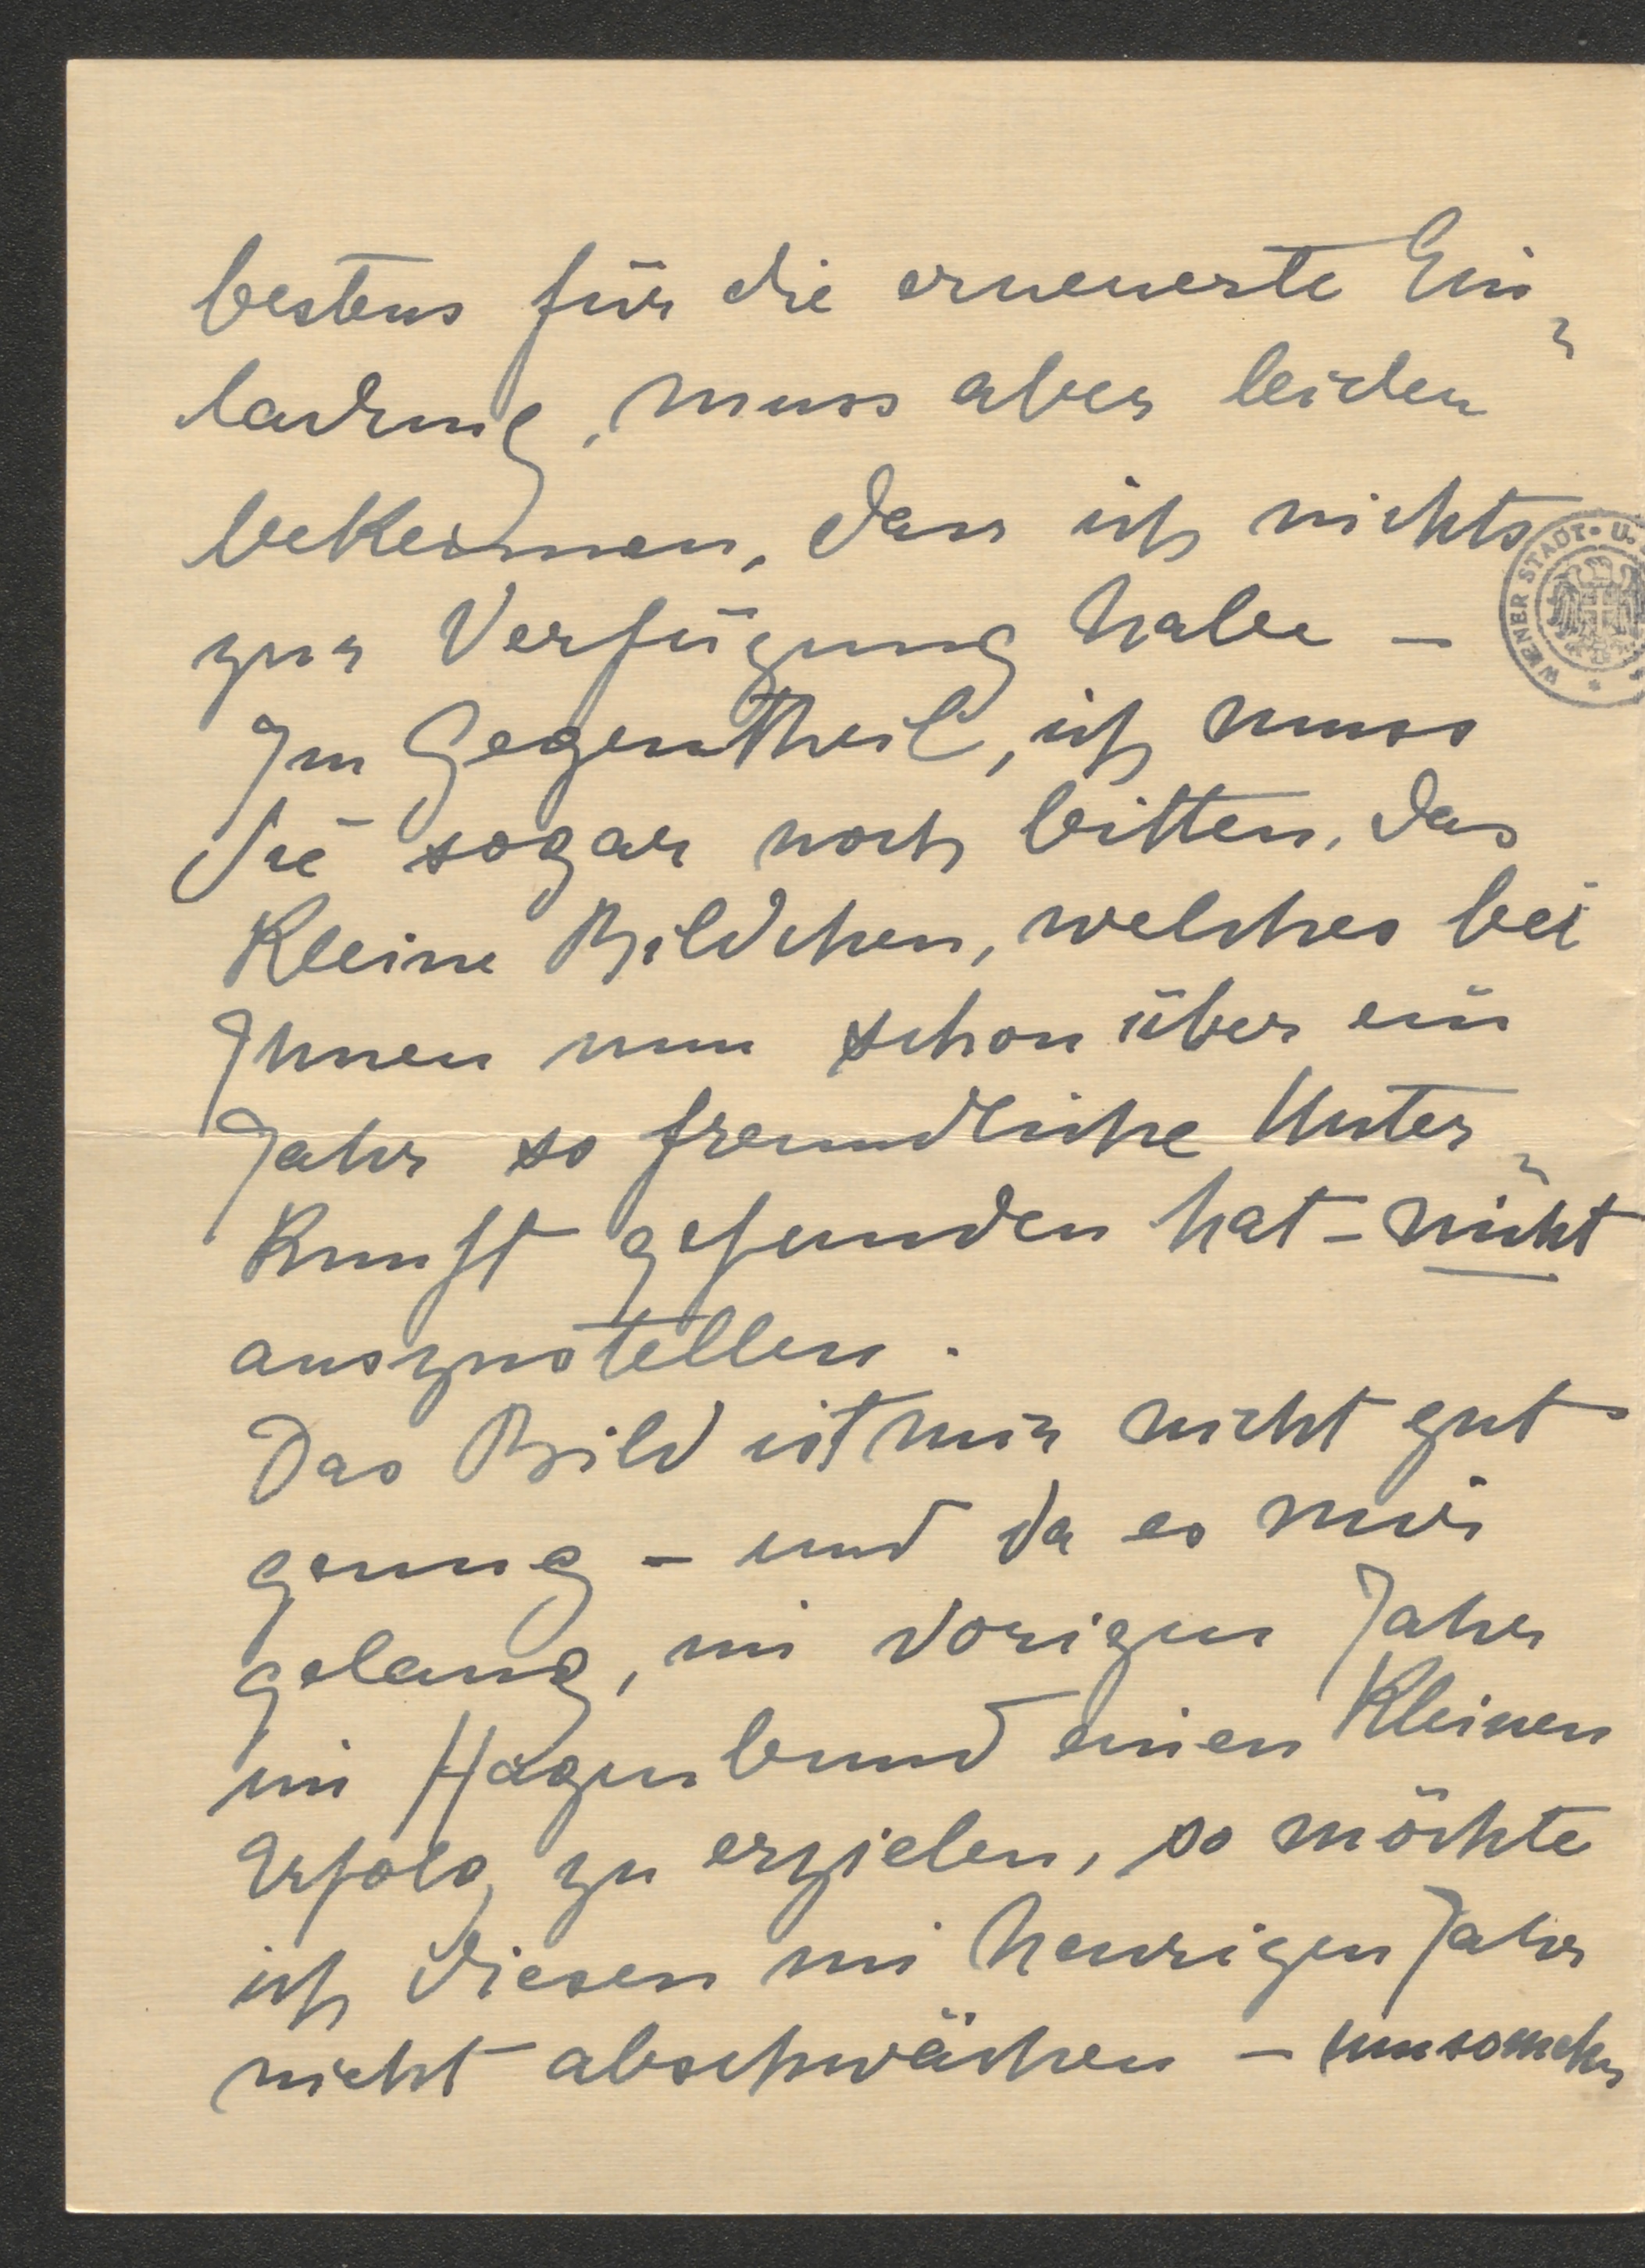 bestens für die erneuerte Ein„
ladung, muss aber leider
bekennen, dass ich nichts
zur Verfügung habe –
Im Gegentheil, ich muss
Sie sogar noch bitten, das
kleine Bildchen, welches bei
Ihnen nun schon über ein
Jahr so freundliche Unter„
kunft gefunden hat – nicht
auszustellen.
Das Bild ist mir nicht gut
genug – und da es mir
gelang, im vorigen Jahr
im Hagenbund einen kleinen
Erfolg zu erzielen, so möchte
ich diesen im heurigen Jahr
nicht abschwächen – umsomehr
WIENER STADT- U.